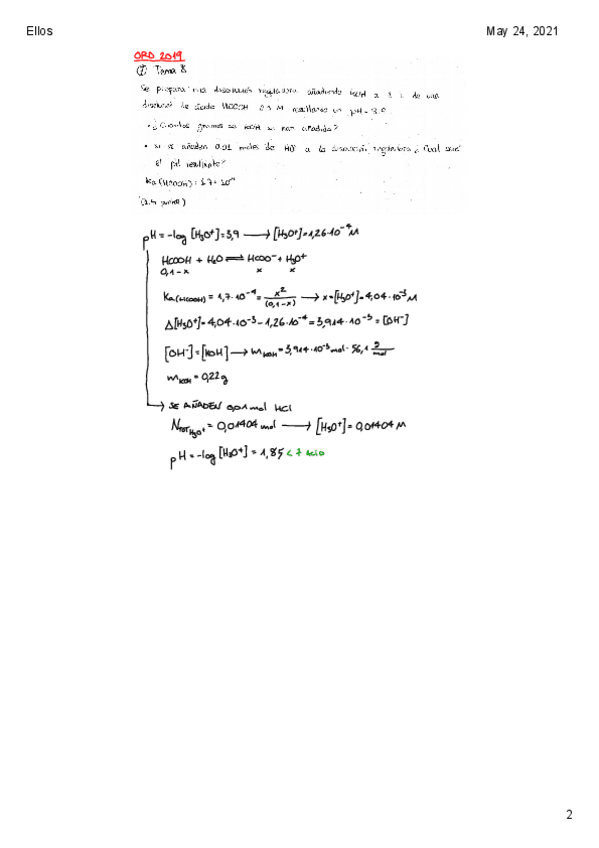 Ellos
May 24, 2021
ORD 2019
① Tema 8
Se prepara una disolución reguladora añadiendo KOH a 1 L de una
disolución de ácido HCOOH 0.1 M resultando un pH = 3.9
• ¿Cuántos gramos de KOH se han añadido?
• Si se añaden 0.01 moles de HCl a la disolución reguladora ¿Cuál será
el pH resultante?
Ka (HCOOH) = 1.7 · 10⁻⁴
pH = -log [H₃O⁺] = 3,9 → [H₃O⁺] = 1,26·10⁻⁴ M
HCOOH + H₂O ⇌ HCOO⁻ + H₃O⁺
0,1-x x x
Ka (HCOOH) = 1,7·10⁻⁴ = x²/(0,1-x) → x = [H₃O⁺] = 4,04·10⁻³ M
Δ[H₃O⁺] = 4,04·10⁻³ - 1,26·10⁻⁴ = 3,914·10⁻³ = [OH⁻]
[OH⁻] = [KOH] → m KOH = 3,914·10⁻³ mol · 56,1 g/mol
m KOH = 0,22 g
→ SE AÑADEN 0,01 mol HCl
N TOT H₃O⁺ = 0,01404 mol → [H₃O⁺] = 0,01404 M
pH = -log [H₃O⁺] = 1,85 < 7 Acio
2